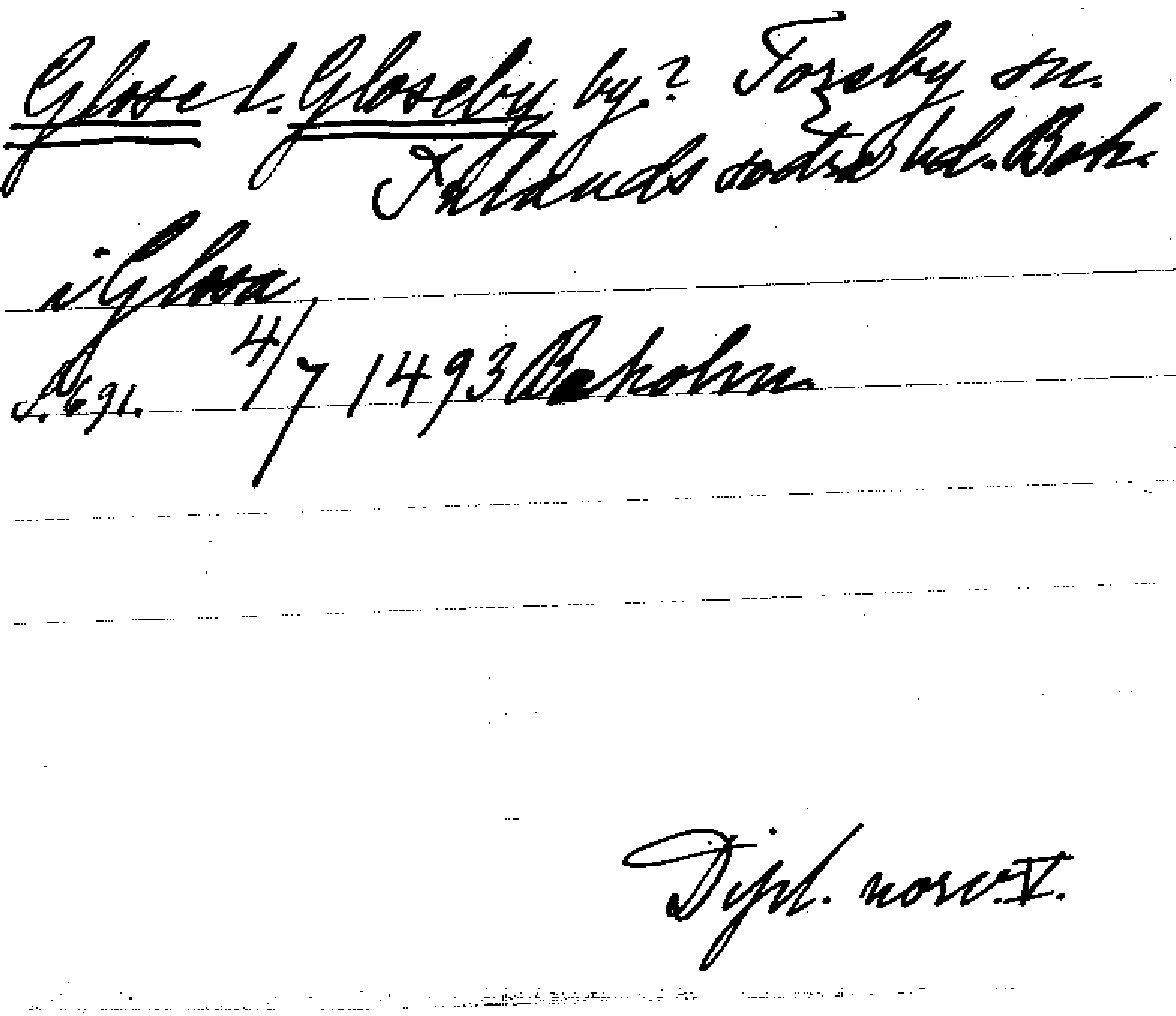 Glose l. Gloseby by? Torsby sn.
Inlands södra hd. Boh.
i Glosa
s. 691. 4/7 1493 Bokolm.
Dipl. norv. V.